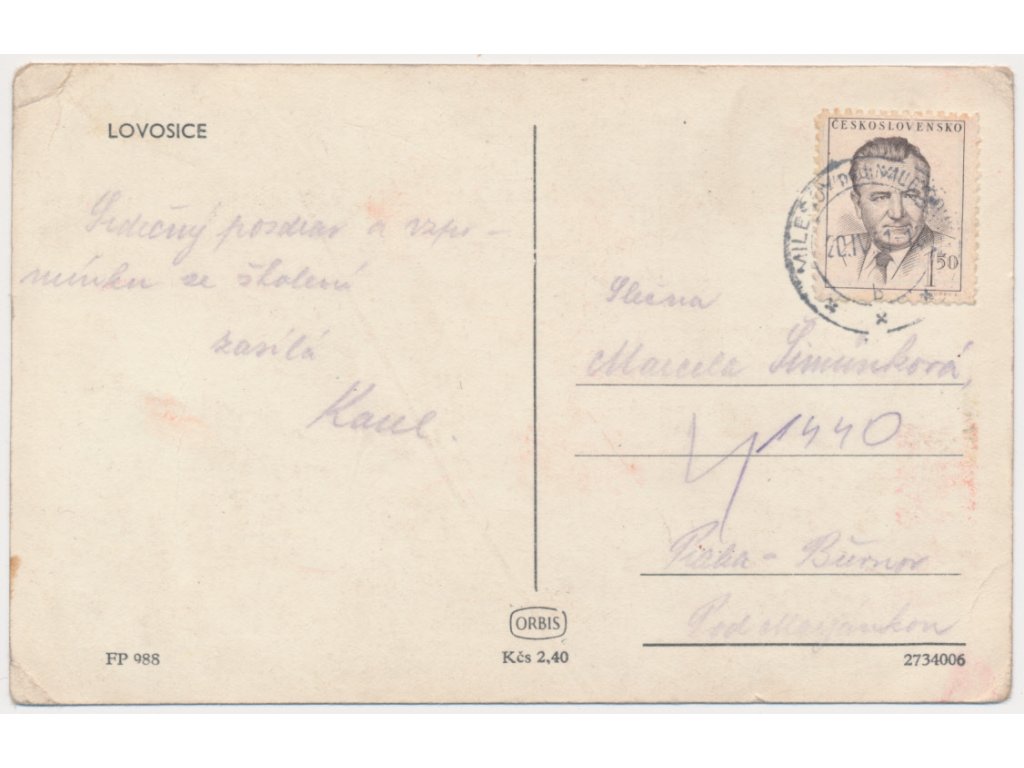 LOVOSICE
Srdečný pozdrav a vzpo-
mínku ze školení
zasílá
Karel.
ČESKOSLOVENSKO
1 50
MILEŠOV
20.IV
b
Slečna
Marcela Šimůnková,
1440
Praha - Břevnov
Pod Marjánkou
ORBIS
FP 988
Kčs 2,40
2734006